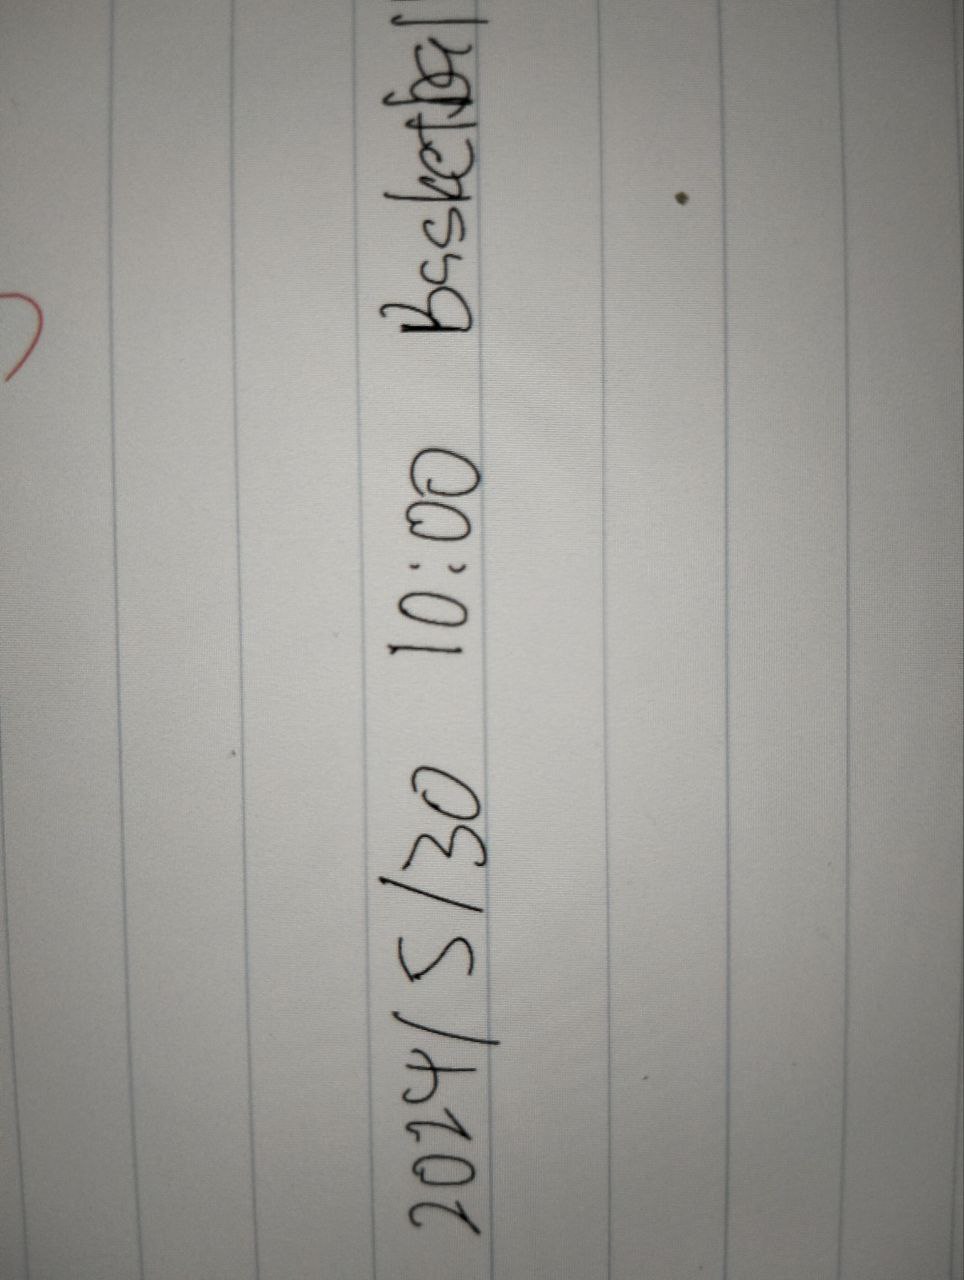 2024/5/30 10:00 basketball